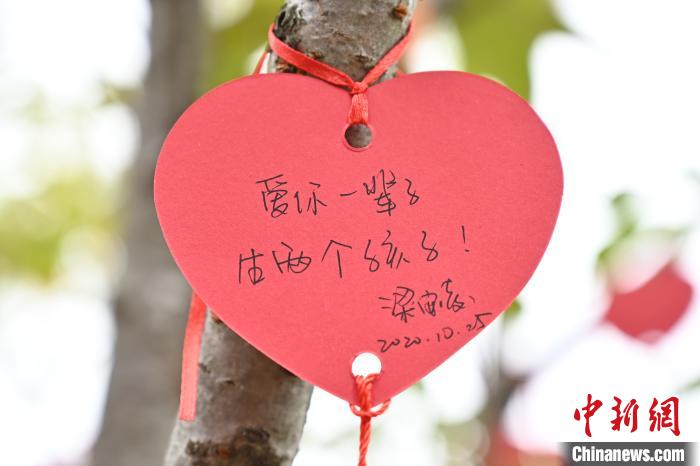 爱你一辈子
生两个孩子！
2020.10.25
中新网
Chinanews.com